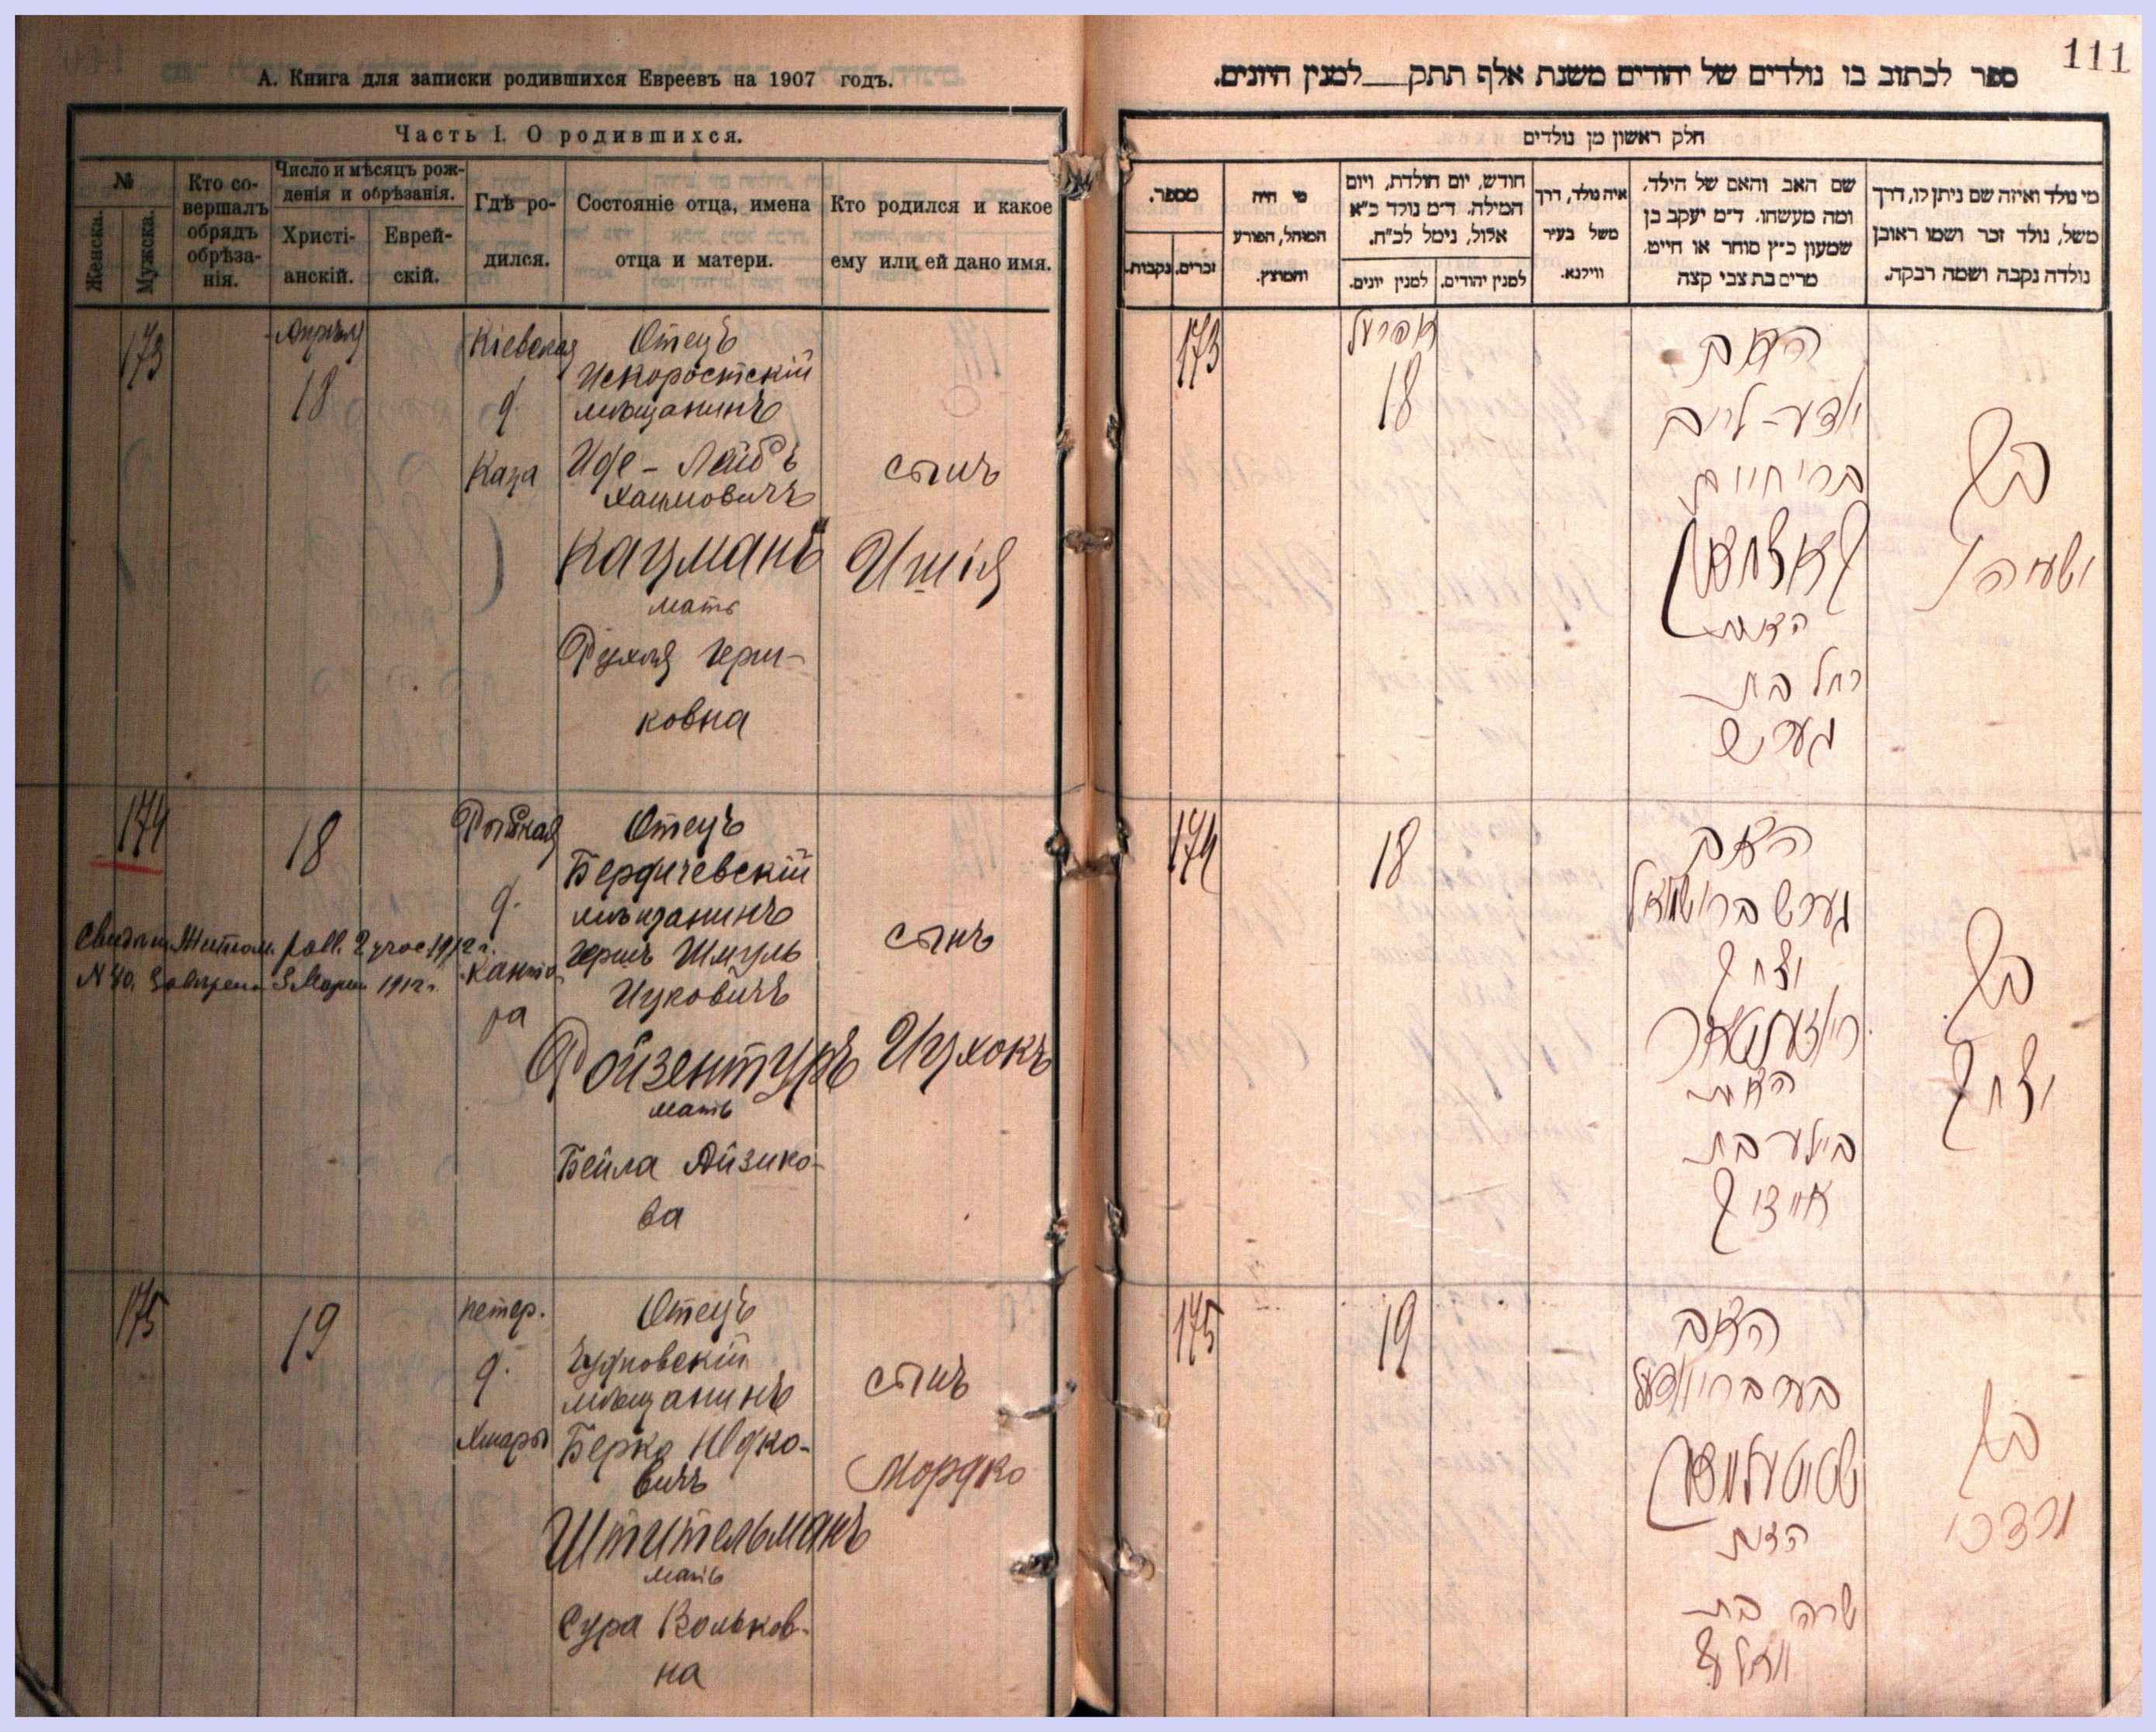 А. Книга для записки родившихся Евреевъ на 1907 годъ.
Часть I. О родившихся.
№
Женска.
Мужска.
Кто со-
вершалъ
обрядъ
обрѣза-
нія.
Число и мѣсяцъ рож-
денія и обрѣзанія.
Христі-
анскій.
Еврей-
скій.
Гдѣ ро-
дился.
Состояніе отца, имена
отца и матери.
Кто родился и какое
ему или ей дано имя.
173
Апрѣля
18
Кіевская
д.
Каца
Отецъ
Искоростскій
мѣщанинъ
Иде - Лейбъ
Хаимовичъ
Кацманъ
мать
Рухля Герш-
ковна
сынъ
Ишія
174
18
д.
Канто
ра
Отецъ
Бердичевскій
мѣщанинъ
Гершъ Шмуль
Ицковичъ
Ройзентуръ
мать
Бейла Айзико-
ва
сынъ
Ицхокъ
Житом. 2 1912 г.
N 40. 1912 г.
175
19
петер.
д.
Хмары
Отецъ
Чудновскій
мѣщанинъ
Берко Юдко-
вичъ
Штительманъ
мать
Сура Вольков-
на
сынъ
Мордко
111
ספר לכתוב בו נולדים של יהודים משנת אלף תתק למנין היונים.
חלק ראשון מן נולדים
מספר.
זכרים.
נקבות.
מי היה
המוהל, הפורע
והמוצץ.
חודש, יום תולדת, ויום
המילה. ד"מ נולד כ"א
אלול, נימל לכ"ח.
למנין יהודים.
למנין יונים.
איה נולד, דרך
משל בעיר
ווילנא.
שם האב והאם של הילד,
ומה מעשהו. ד"מ יעקב בן
שמעון כ"ץ סוחר או חייט.
מרים בת צבי קצה
מי נולד ואיזה שם ניתן לו, דרך
משל, נולד זכר ושמו ראובן
נולדה נקבה ושמה רבקה.
173
אפריל
18
האב
קאצמאן
האם
רחל בת
גערש
בן
ישעיהו
174
18
האב
גערש בר שמואל
יצחק
רויזענטור
האם
ביילע בת
אייזיק
בן
יצחק
175
19
האב
שטיטעלמאן
האם
שרה בת
בן
מרדכי